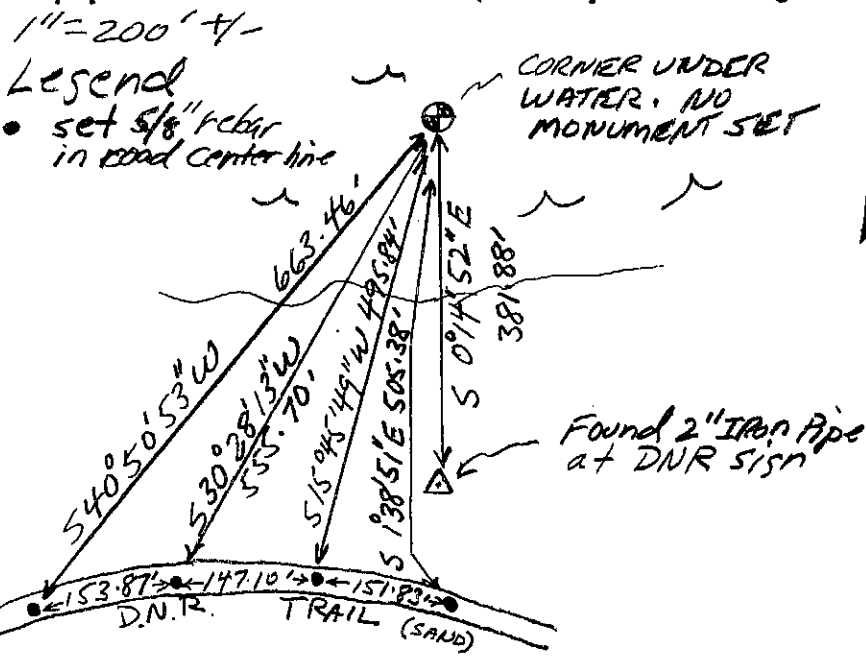 1"=200' +/-
Legend
• set 5/8" rebar
in road centerline
CORNER UNDER
WATER. NO
MONUMENT SET
663.46'
S40°50'53"W
S30°28'13"W
555.70'
S15°45'49"W 495.84'
S 1°38'51"E 505.38'
S 0°14'52"E
381.88'
Found 2" Iron Pipe
at DNR sign
153.87' 147.10' 151.83'
D.N.R. TRAIL (SAND)